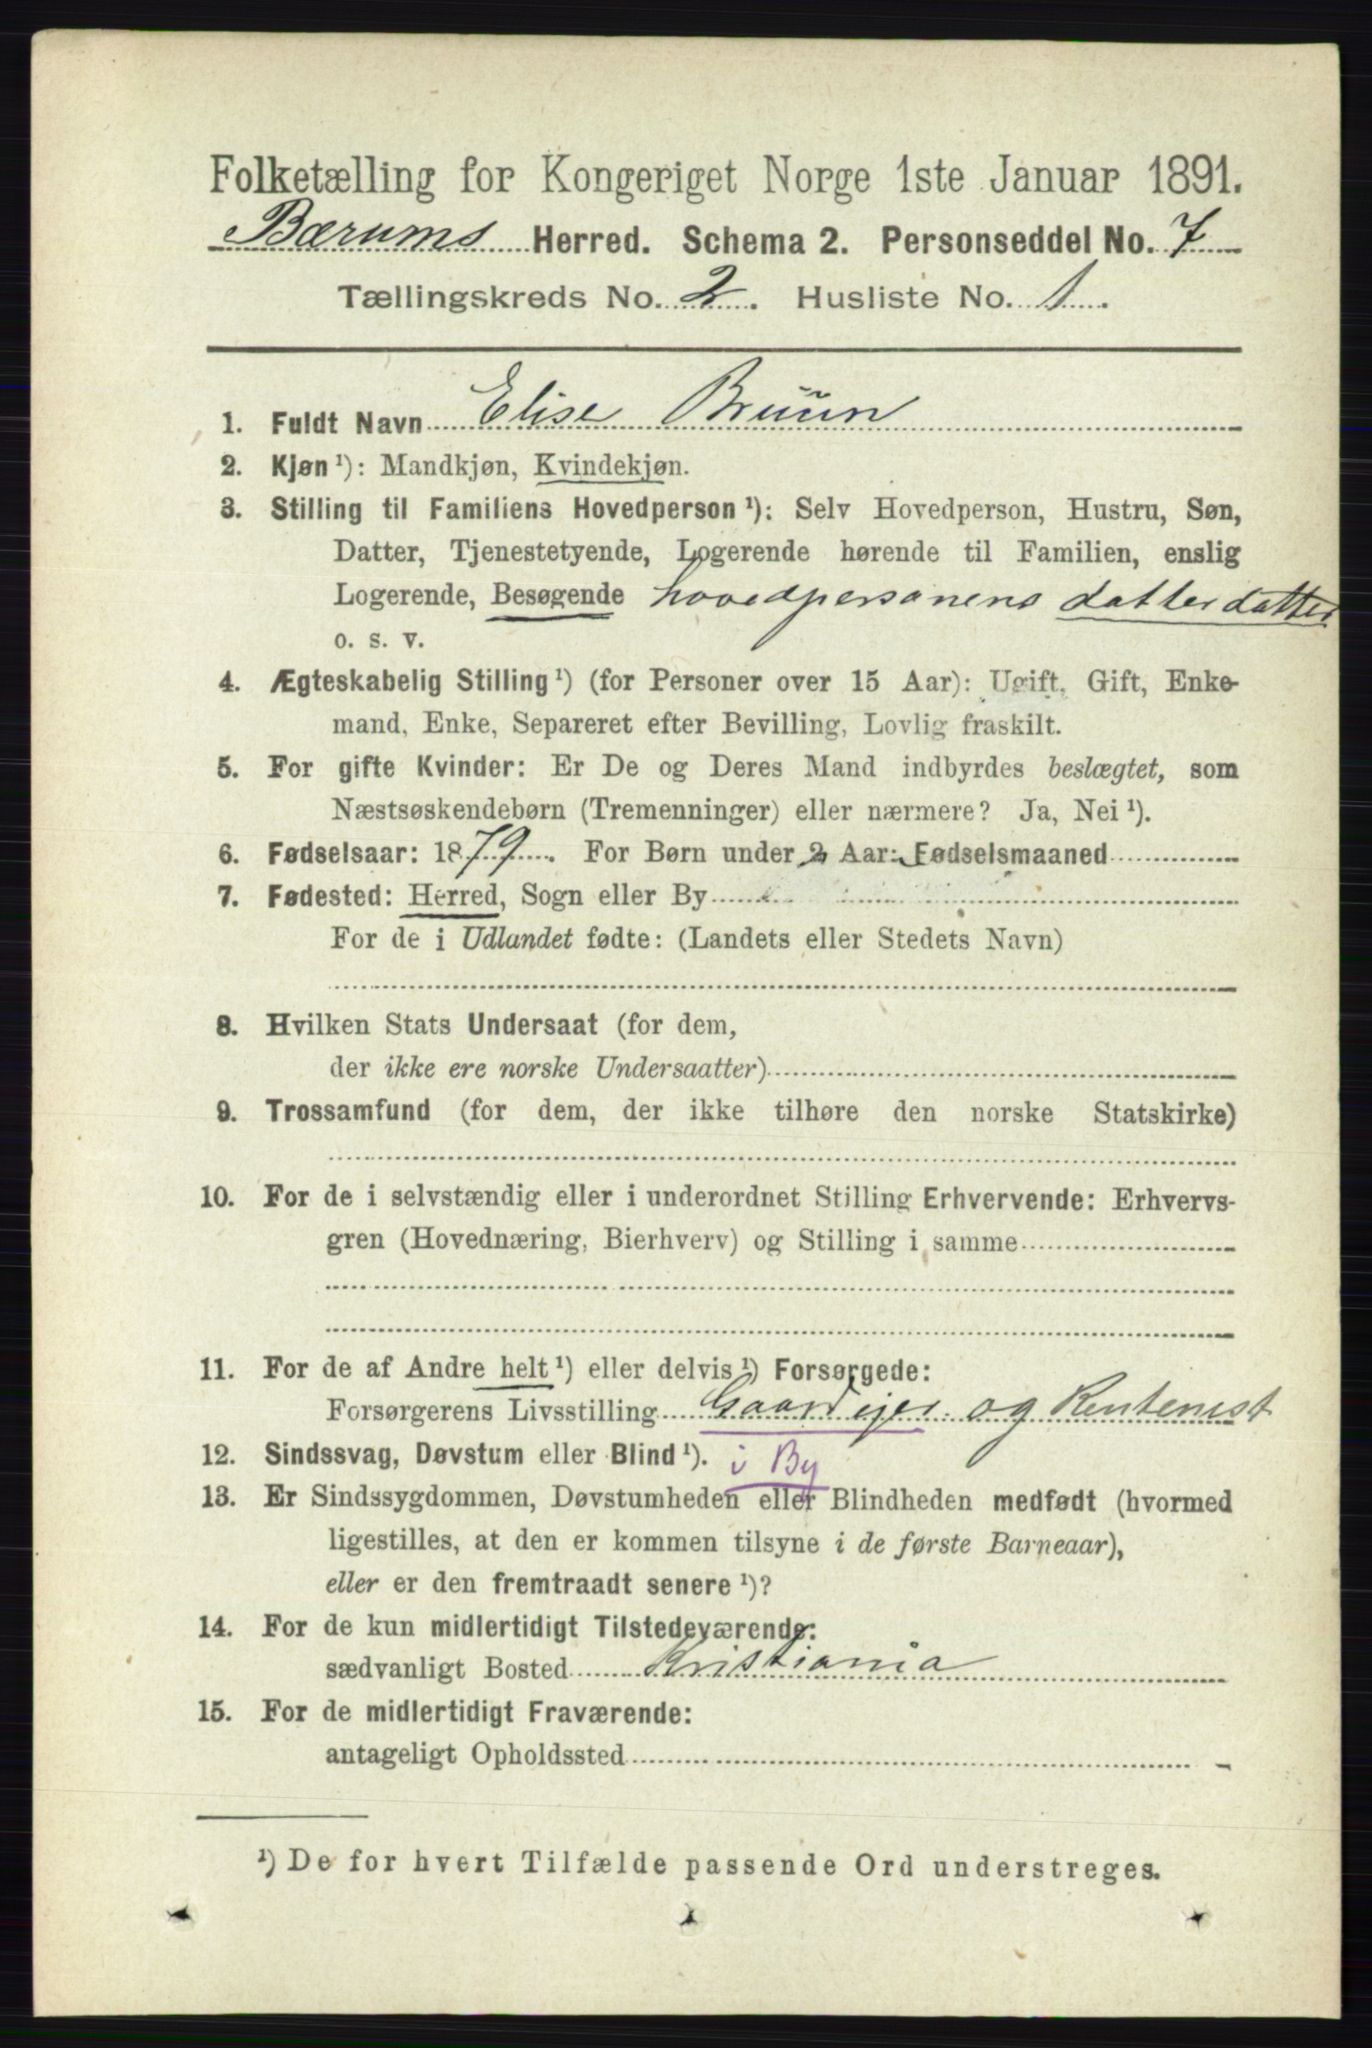 Folketælling for Kongeriget Norge 1ste Januar 1891.
Bærums Herred. Schema 2. Personseddel No. 7
Tællingskreds No. 2. Husliste No. 1.
1. Fuldt Navn Elise Bruun
2. Kjøn ¹): Mandkjøn, Kvindekjøn.
3. Stilling til Familiens Hovedperson ¹): Selv Hovedperson, Hustru, Søn,
Datter, Tjenestetyende, Logerende hørende til Familien, enslig
Logerende, Besøgende hovedpersonens datterdatter
o. s. v.
4. Ægteskabelig Stilling ¹) (for Personer over 15 Aar): Ugift, Gift, Enke-
mand, Enke, Separeret efter Bevilling, Lovlig fraskilt.
5. For gifte Kvinder: Er De og Deres Mand indbyrdes beslægtet, som
Næstsøskendebørn (Tremenninger) eller nærmere? Ja, Nei ¹).
6. Fødselsaar: 1879. For Børn under 2 Aar: Fødselsmaaned
7. Fødested: Herred, Sogn eller By
For de i Udlandet fødte: (Landets eller Stedets Navn)
8. Hvilken Stats Undersaat (for dem,
der ikke ere norske Undersaatter)
9. Trossamfund (for dem, der ikke tilhøre den norske Statskirke)
10. For de i selvstændig eller i underordnet Stilling Erhvervende: Erhvervs-
gren (Hovednæring, Bierhverv) og Stilling i samme
11. For de af Andre helt ¹) eller delvis ¹) Forsørgede:
Forsørgerens Livsstilling Gaardejer og Rentenist
12. Sindssvag, Døvstum eller Blind ¹). i By
13. Er Sindssygdommen, Døvstumheden eller Blindheden medfødt (hvormed
ligestilles, at den er kommen tilsyne i de første Barneaar),
eller er den fremtraadt senere ¹)?
14. For de kun midlertidigt Tilstedeværende:
sædvanligt Bosted Kristiania
15. For de midlertidigt Fraværende:
antageligt Opholdssted
¹) De for hvert Tilfælde passende Ord understreges.